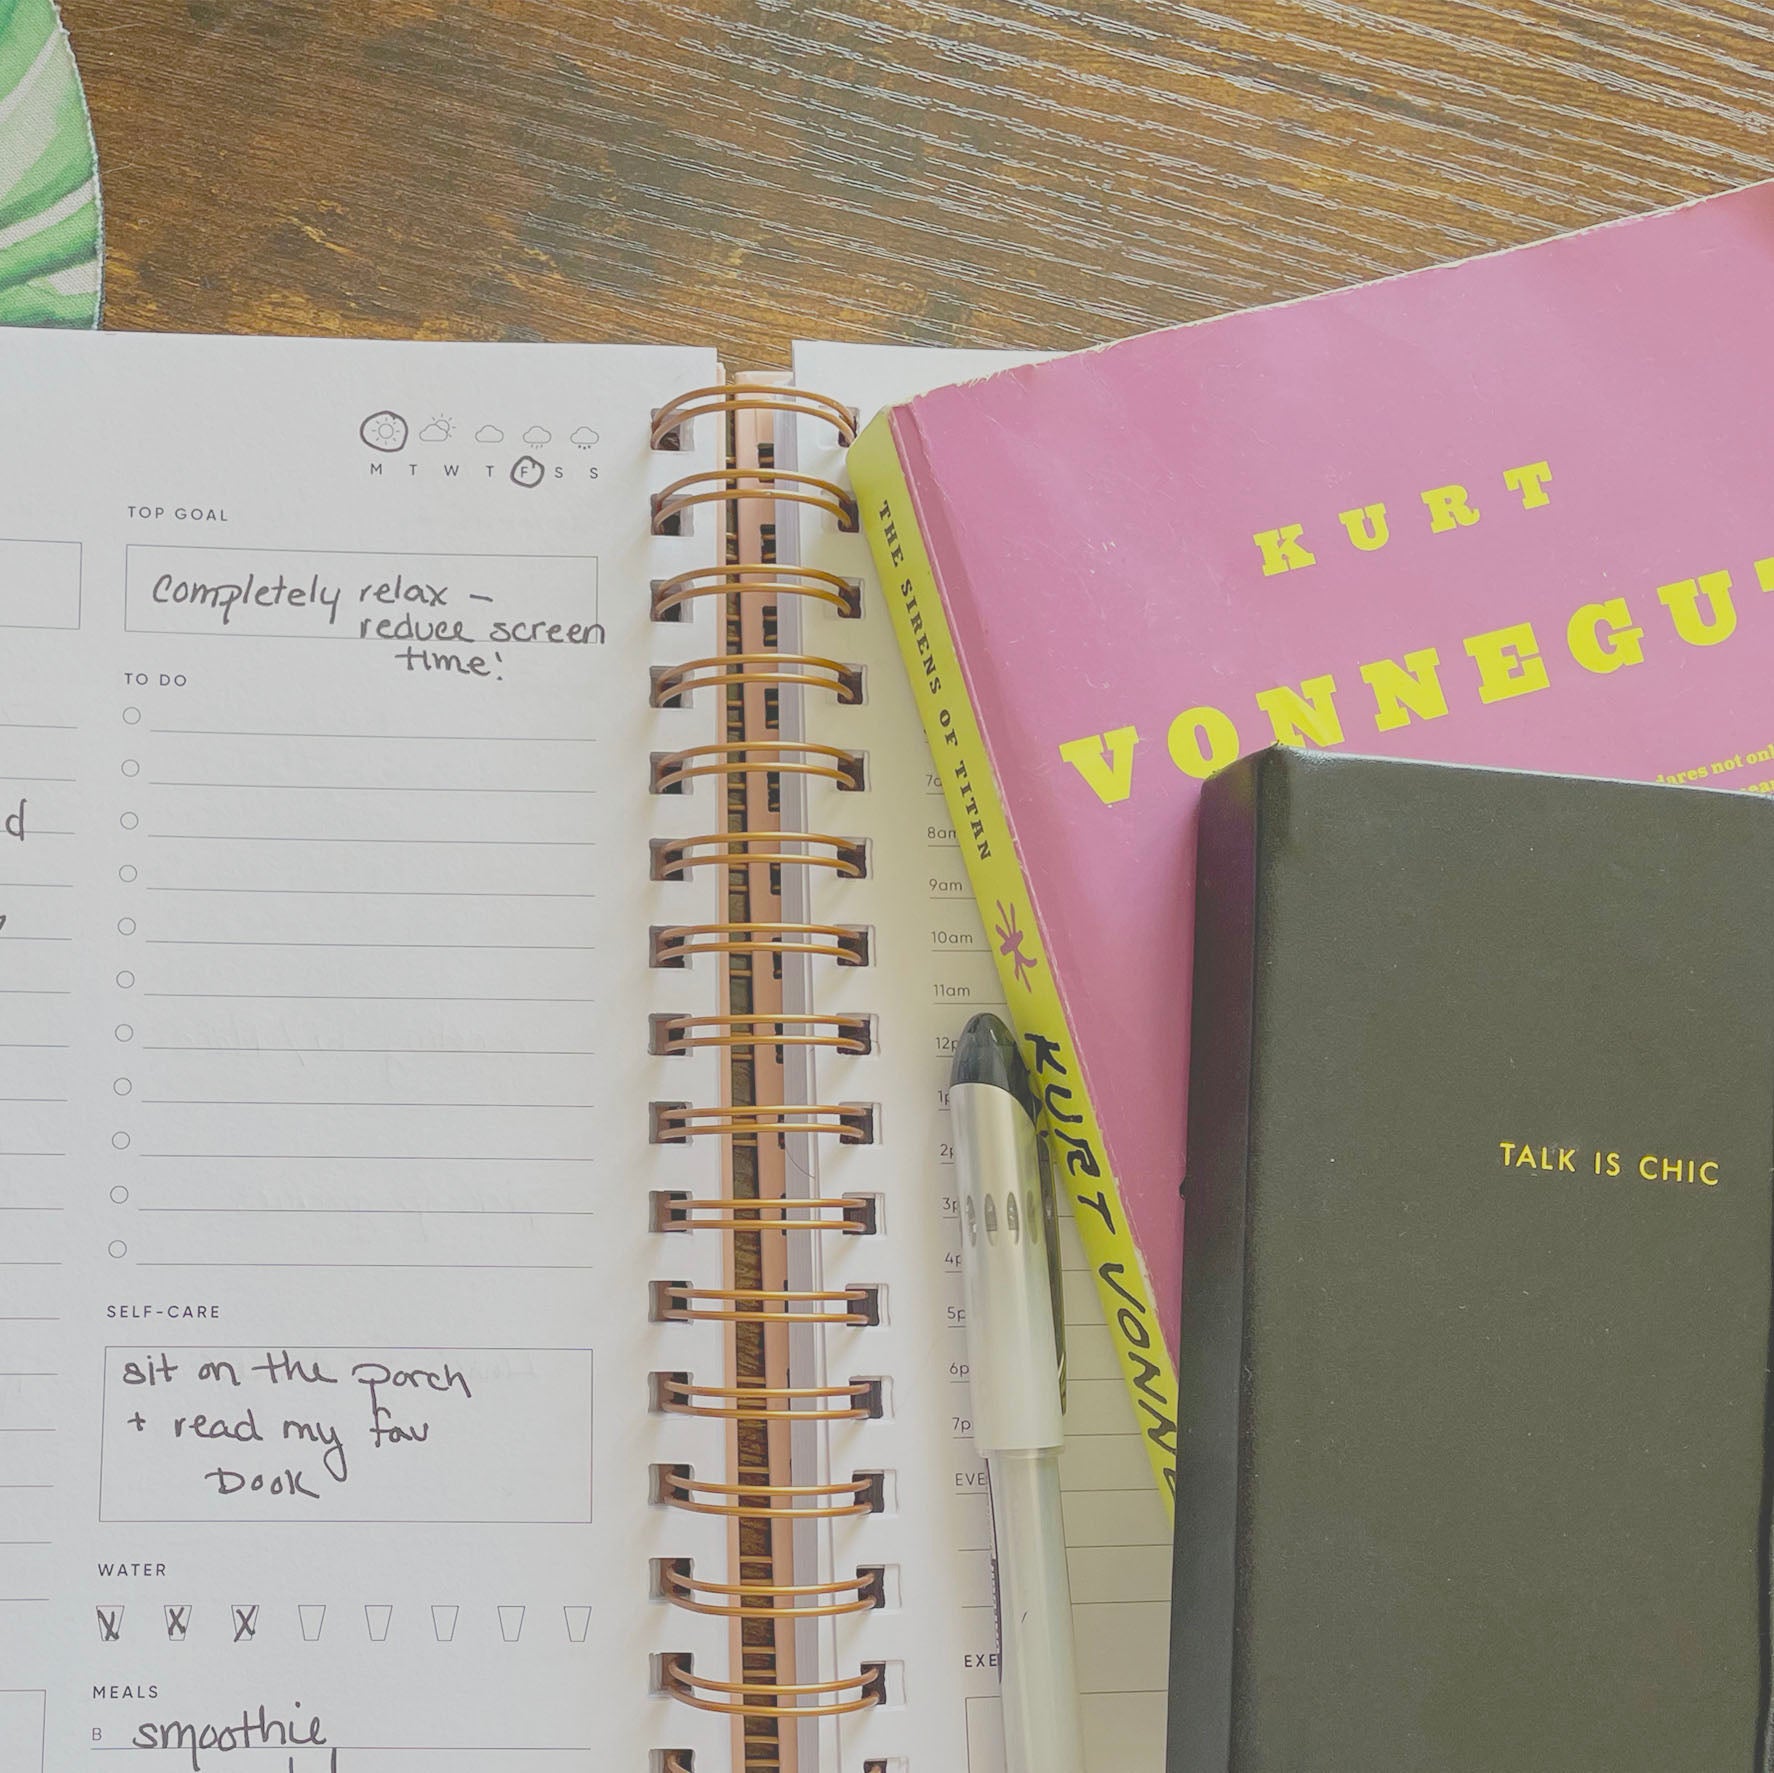 M T W T F S S
TOP GOAL
Completely relax –
reduce screen
time!
TO DO
d
SELF-CARE
sit on the porch
+ read my fav
Book
WATER
X X X
MEALS
B smoothie
7a
8am
9am
10am
11am
12p
1p
2p
3p
4p
5p
6p
7p
EVE
EXE
THE SIRENS OF TITAN
KURT VONNE
KURT
VONNEGUT
dares not onl
TALK IS CHIC